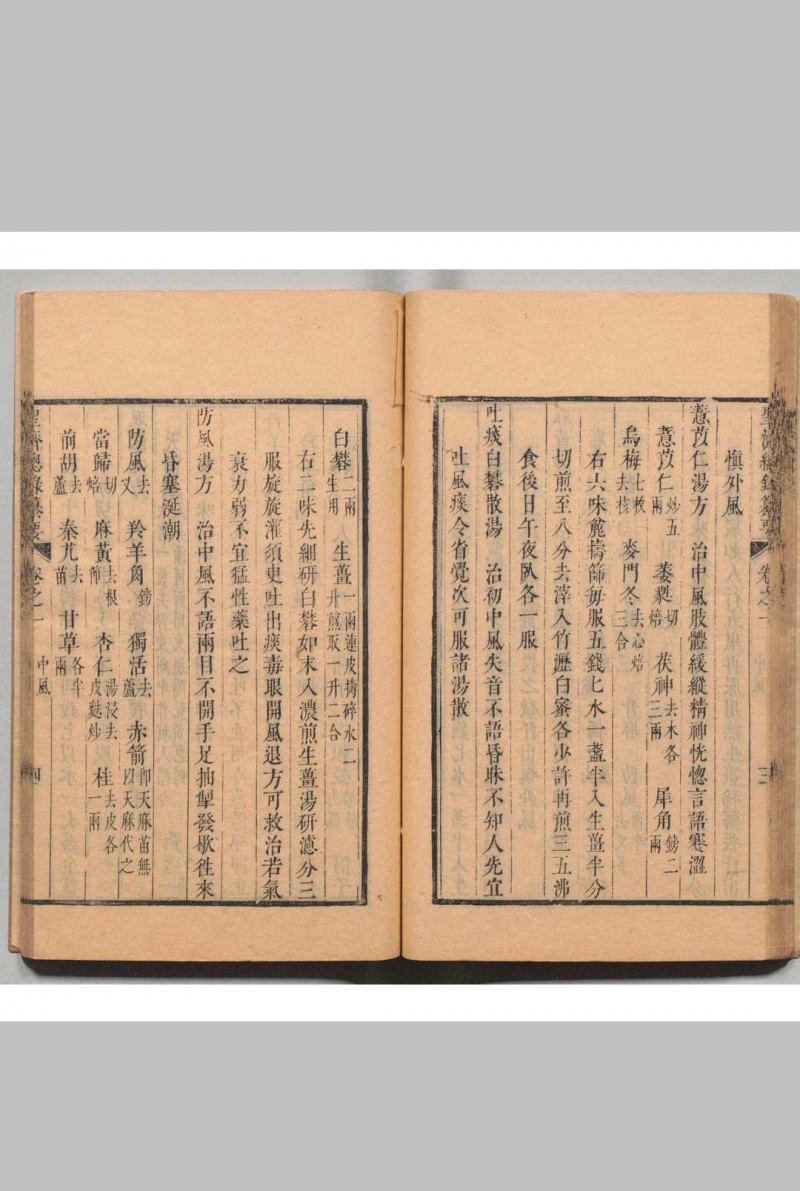 聖濟總錄纂要 卷之一 三
慎外風
薏苡仁湯方 治中風肢體緩縱精神恍惚言語蹇澀
薏苡仁炒五兩 萎蕤切焙 茯神去木各三兩 犀角鎊二兩
烏梅七枚去核 麥門冬去心焙三合
右六味麄擣篩每服五錢匕水一盞半入生薑半分
切煎至八分去滓入竹瀝白蜜各少許再煎三五沸
食後日午夜臥各一服
吐痰白礬散湯 治初中風失音不語昏昧不知人先宜
吐風痰令省覺次可服諸湯散
白礬二兩生用 生薑一兩連皮擣碎水二升煎取一升二合
右二味先細研白礬如末入濃煎生薑湯研濾分三
服旋旋灌須臾吐出痰毒眼開風退方可救治若氣
衰力弱不宜猛性藥吐之
防風湯方 治中風不語兩目不開手足抽掣發歇徃來
昏塞涎潮
防風去叉 羚羊角鎊 獨活去蘆 赤箭卽天麻苗無以天麻代之
當歸切焙 麻黃去根節 杏仁湯浸去皮麩炒 桂去皮各一兩
前胡去蘆 秦艽去苗 甘草各半兩
聖濟總錄纂要 卷之一 中風 四